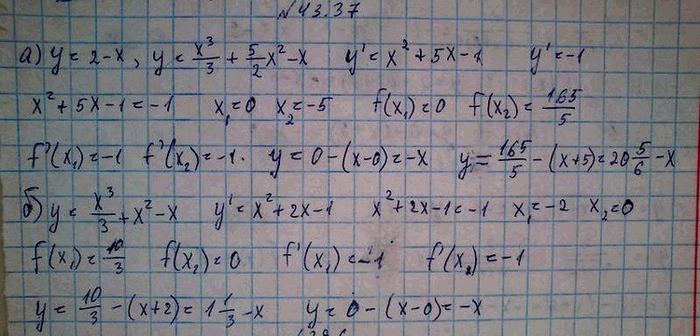 №43.37
а) y = 2-x, y = x³/3 + 5/2 x² - x y' = x² + 5x - 1 y' = -1
x² + 5x - 1 = -1 x₁ = 0 x₂ = -5 f(x₁) = 0 f(x₂) = 165/5
f'(x₁) = -1 f'(x₂) = -1. y = 0 - (x-0) = -x y = 165/5 - (x+5) = 20 5/6 - x
б) y = x³/3 + x² - x y' = x² + 2x - 1 x² + 2x - 1 = -1 x₁ = -2 x₂ = 0
f(x₁) = 10/3 f(x₂) = 0 f'(x₁) = -1 f'(x₂) = -1
y = 10/3 - (x+2) = 1 1/3 - x y = 0 - (x-0) = -x